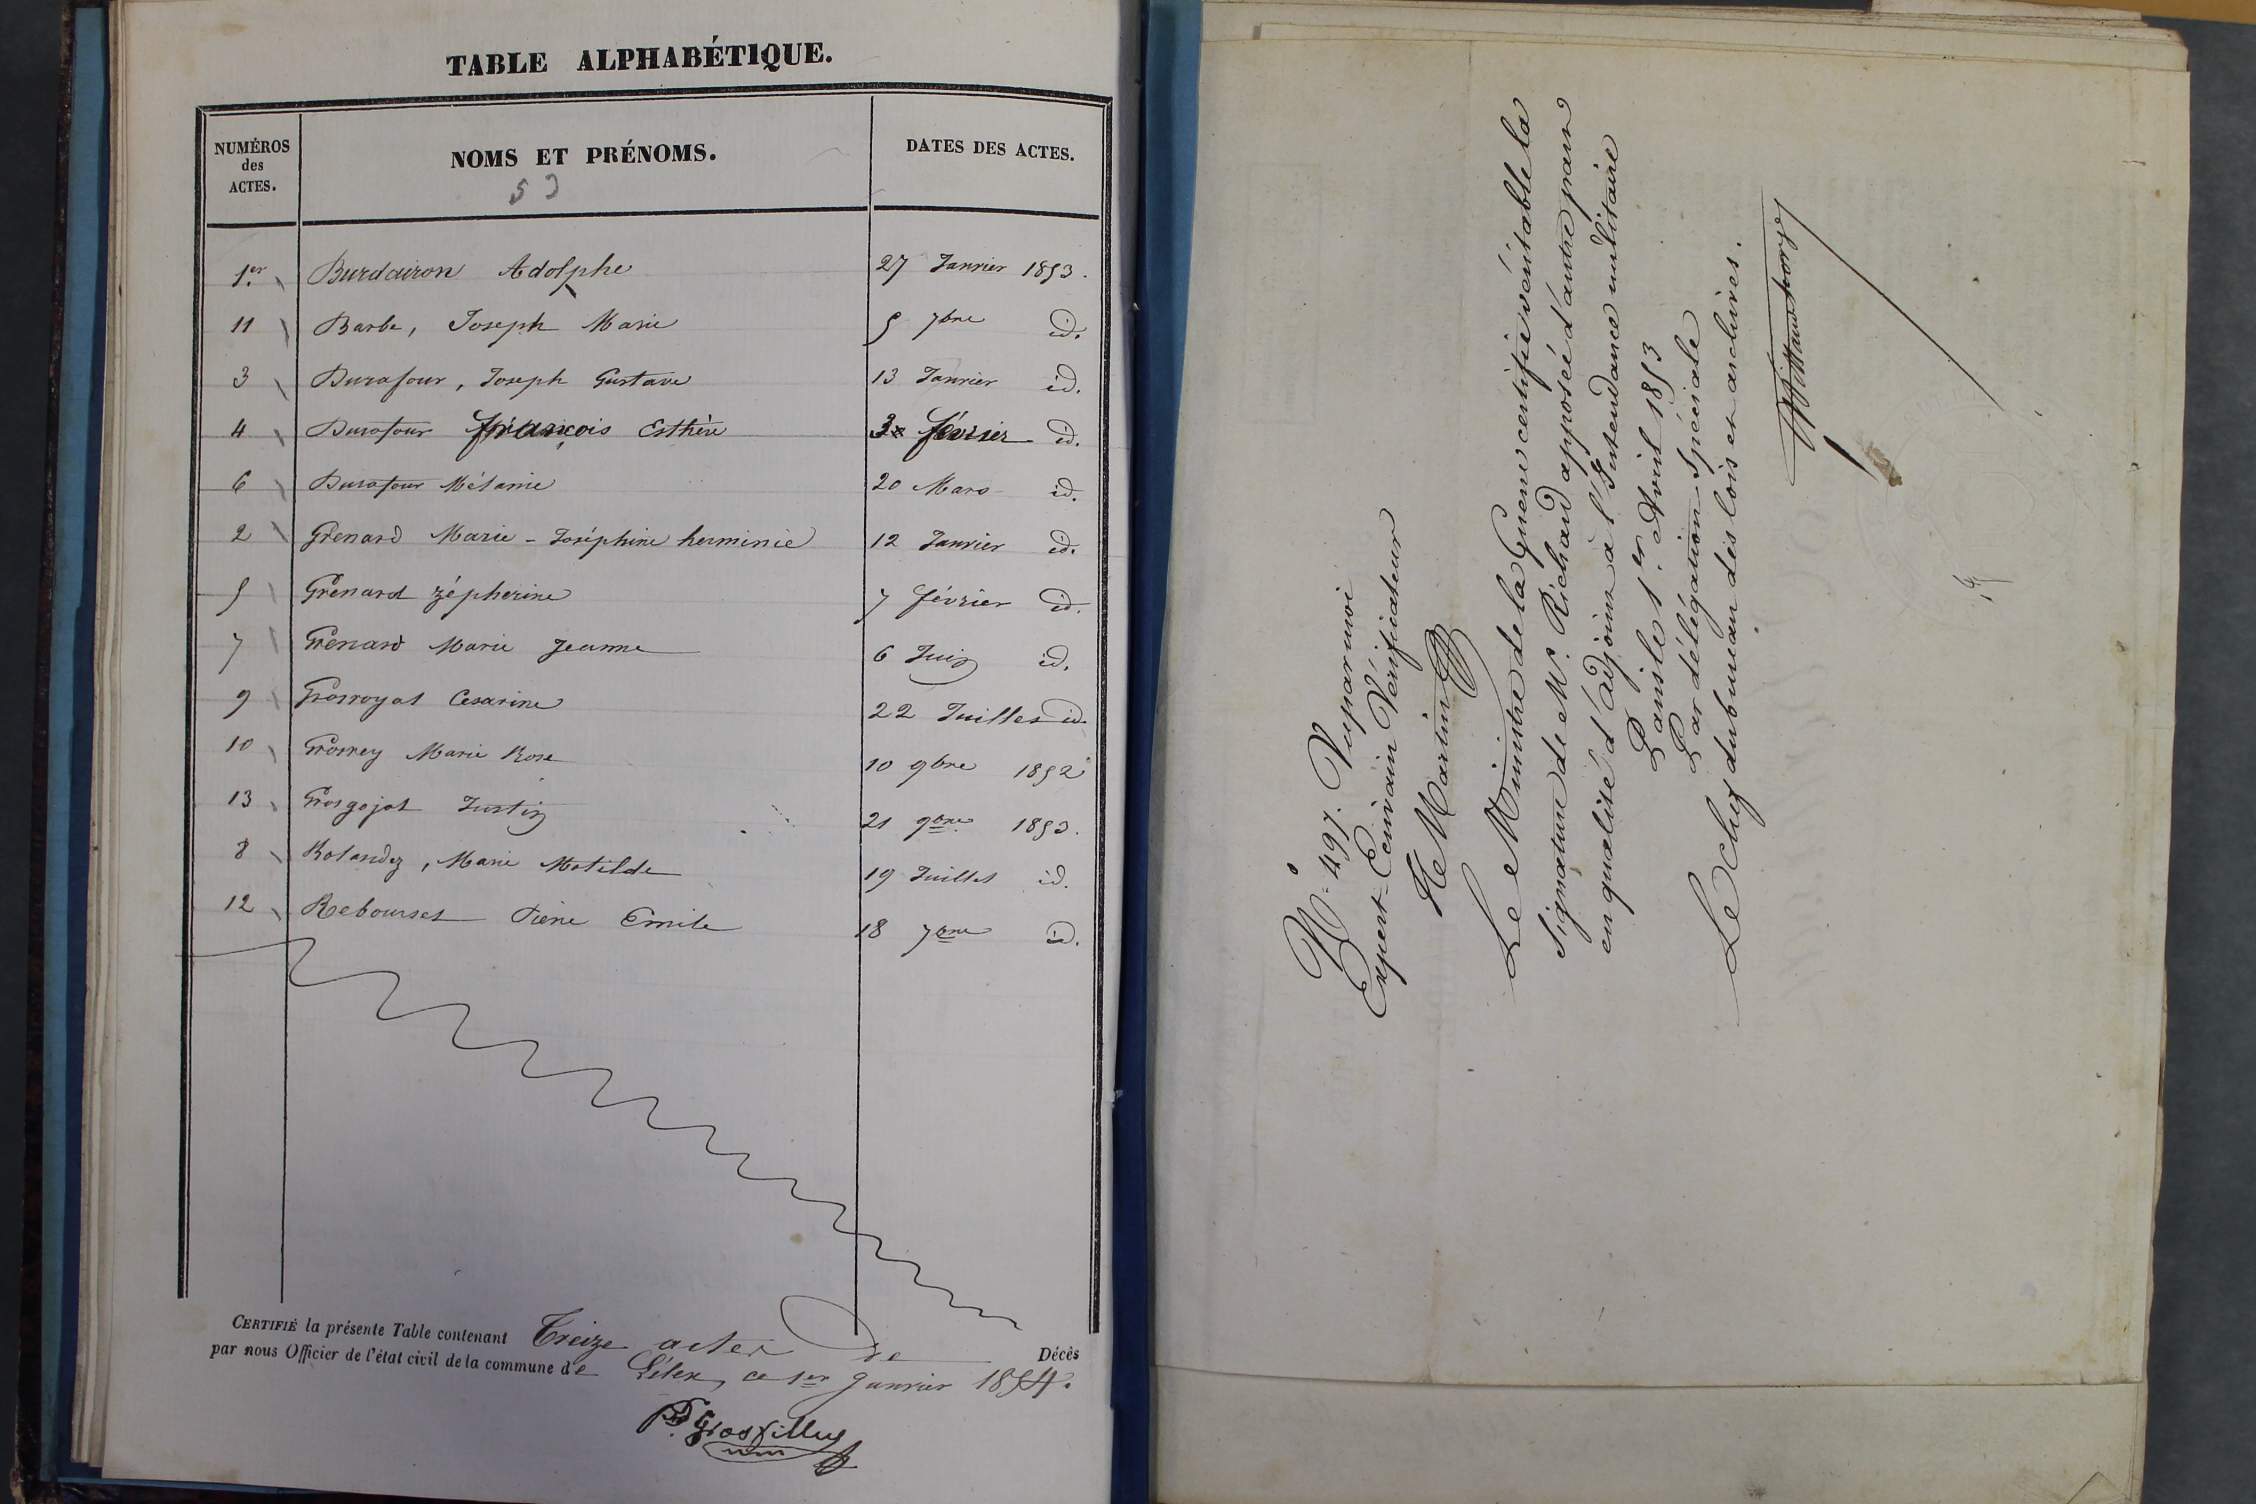 TABLE ALPHABÉTIQUE.
NUMÉROS des ACTES.
NOMS ET PRÉNOMS.
DATES DES ACTES.
53
1er Burdairon Adolphe 27 Janvier 1853.
11 Barbe, Joseph Marie 5 7bre id.
3 Durafour, Joseph Gustave 13 Janvier id.
4 Durafour françois Esthère 3 février id.
6 Durafour Mélanie 20 Mars id.
2 Grenard Marie-Joséphine herminie 12 Janvier id.
5 Grenard zépherine 7 février id.
7 Grenard Marie Jeanne 6 Juin id.
9 Grosroyat Cesarine 22 Juillet id.
10 Grosrey Marie Rose 10 9bre 1852
13 Grosgojat Justin 21 9bre 1853.
8 Rolandez, Marie Matilde 19 Juillet id.
12 Rebourset Pierre Emile 18 7bre id.
CERTIFIÉ la présente Table contenant Treize actes de Décès
par nous Officier de l'état civil de la commune de Lélex, ce 1er Janvier 1854.
Grosfilley
N° 497. Vu par moi
Expert-Ecrivain Vérificateur
H Martin
Le Ministre de la Guerre certifie véritable la
signature de Mr. Richard apposée d'autre part
en qualité d'adjoint à l'Intendance militaire
Paris le 1er Avril 1853
Par délégation Spéciale
Le chef du bureau des lois et archives.